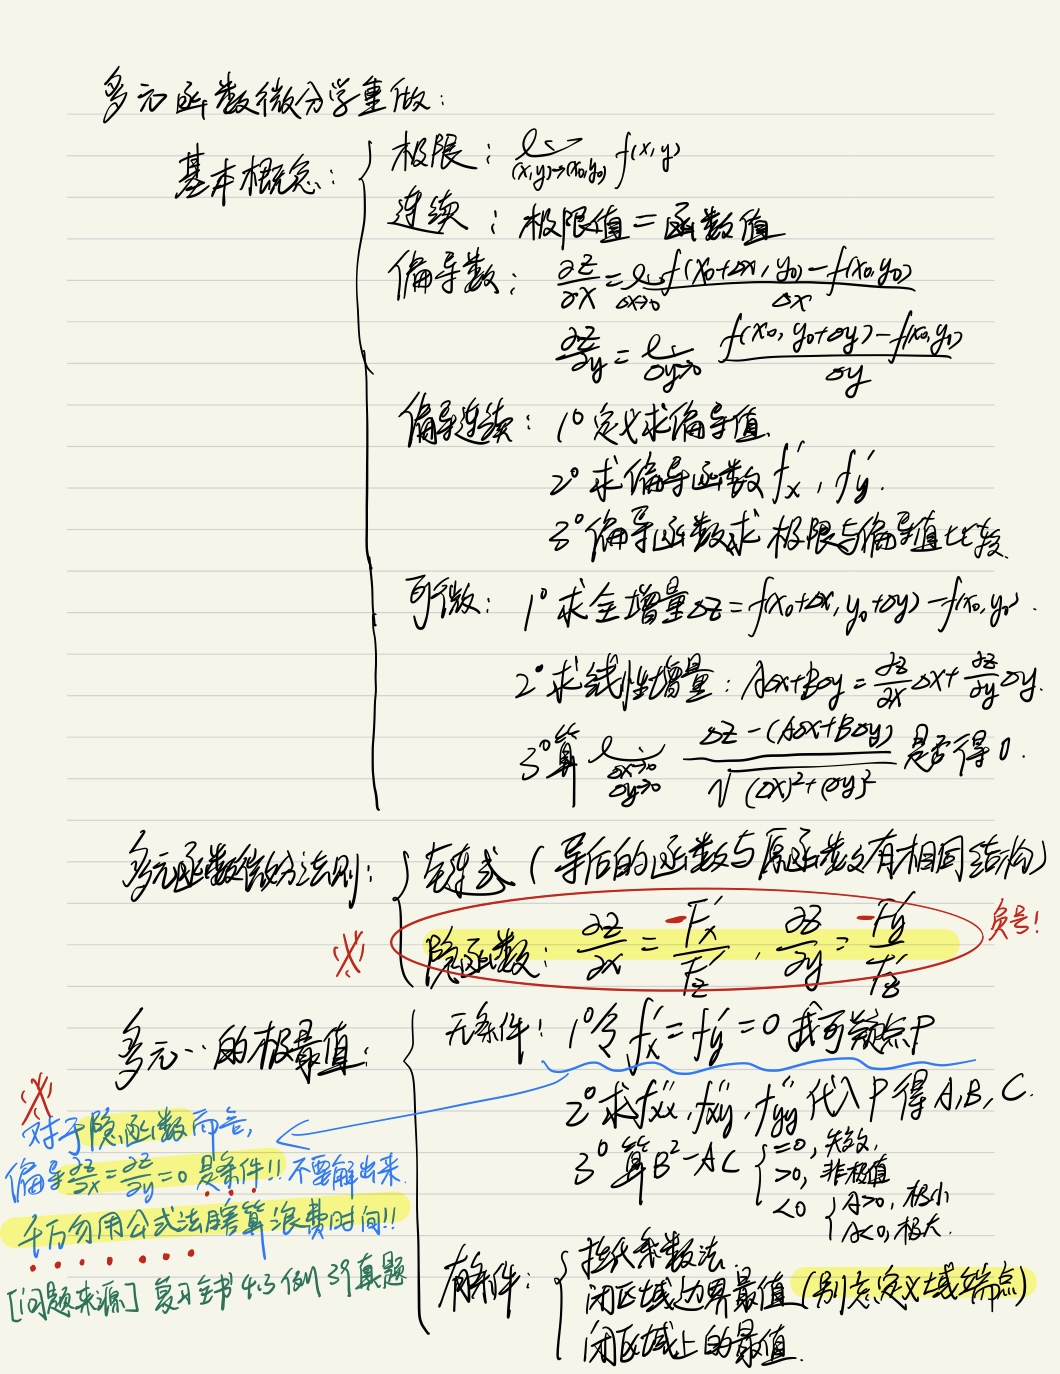 多元函数微分学重做：
基本概念：
极限：lim (x,y)→(x₀,y₀) f(x,y)
连续：极限值＝函数值
偏导数：∂z/∂x = lim Δx→0 f(x₀+Δx, y₀)−f(x₀,y₀) / Δx
∂z/∂y = lim Δy→0 f(x₀, y₀+Δy)−f(x₀,y₀) / Δy
偏导连续：1° 定义求偏导值.
2° 求偏导函数 f'x, f'y.
3° 偏导函数求极限与偏导值比较.
可微：1° 求全增量Δz = f(x₀+Δx, y₀+Δy)−f(x₀,y₀).
2° 求线性增量：AΔx+BΔy = ∂z/∂x Δx + ∂z/∂y Δy.
3° 算 lim Δx→0 Δy→0 Δz−(AΔx+BΔy) / √(Δx)²+(Δy)² 是否得0.
多元函数微分法则：
链式（导后的函数与原函数有相同结构）
隐函数：∂z/∂x = −F'x/F'z , ∂z/∂y = −F'y/F'z
负号！
多元…的极最值：
无条件！1° 令 f'x = f'y = 0 找可疑点P
2° 求f''xx, f''xy, f''yy 代入P得A,B,C.
3° 算B²−AC
=0, 失效.
>0, 非极值
<0
A>0, 极小
A<0, 极大.
对于隐函数而言,
偏导∂z/∂x=∂z/∂y=0 是条件!! 不要解出来.
千万勿用公式法瞎算浪费时间!!
[问题来源] 复习全书 4.3 例39真题
有条件：
拉氏乘数法.
闭区域边界最值(别忘定义域端点)
闭区域上的最值.